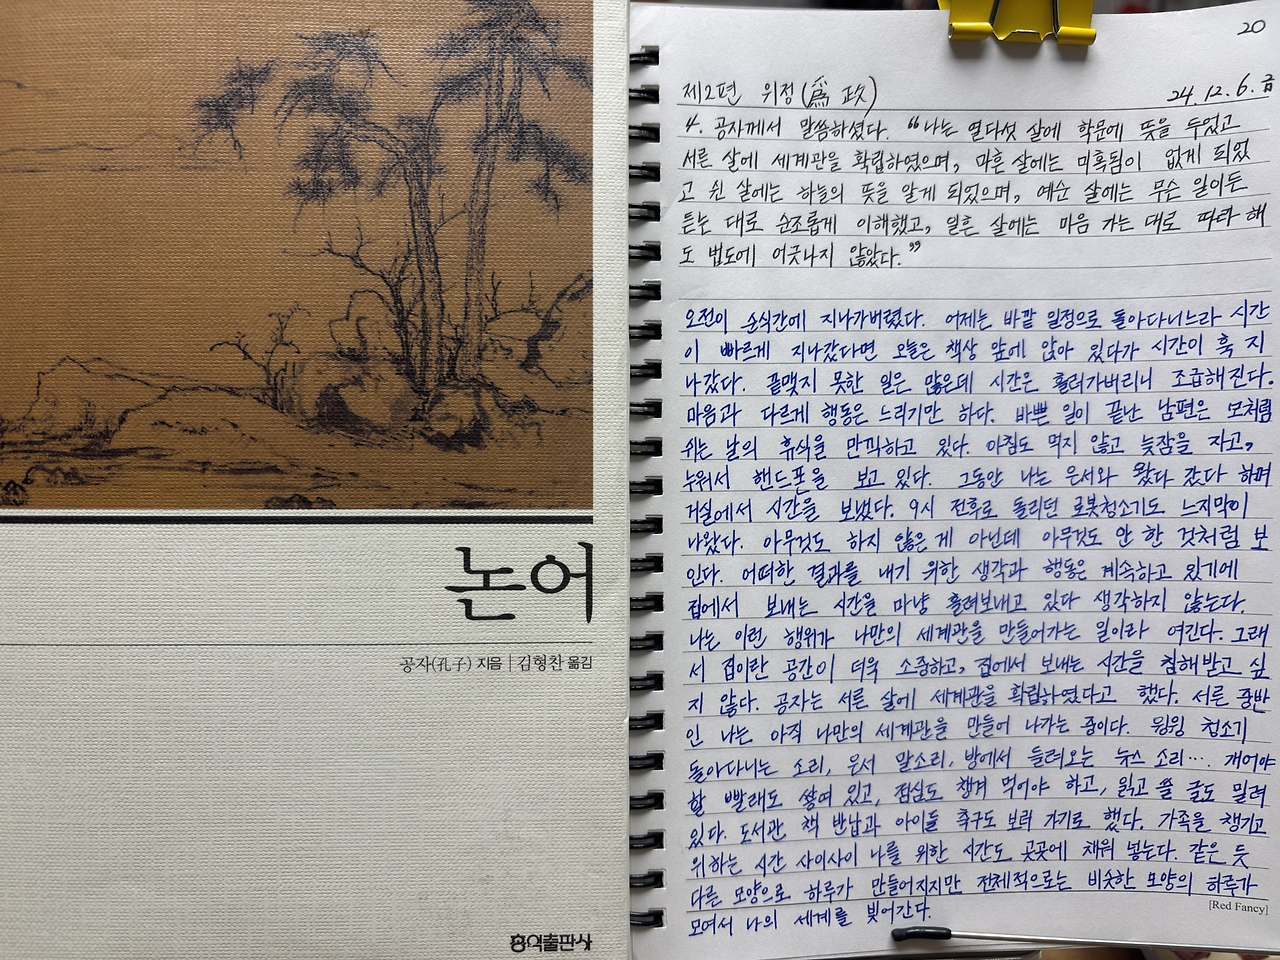 논어
공자(孔子) 지음 | 김형찬 옮김
홍익출판사
20
제2편 위정(爲政) 24.12.6.금
4. 공자께서 말씀하셨다. “나는 열다섯 살에 학문에 뜻을 두었고
서른 살에 세계관을 확립하였으며, 마흔 살에는 미혹됨이 없게 되었
고 쉰 살에는 하늘의 뜻을 알게 되었으며, 예순 살에는 무슨 일이든
듣는 대로 순조롭게 이해했고, 일흔 살에는 마음 가는 대로 따라 해
도 법도에 어긋나지 않았다.”
오전이 순식간에 지나가버렸다. 어제는 바깥 일정으로 돌아다니느라 시간
이 빠르게 지나갔다면 오늘은 책상 앞에 앉아 있다가 시간이 훅 지
나갔다. 끝맺지 못한 일은 많은데 시간은 흘러가버리니 조급해진다.
마음과 다르게 행동은 느리기만 하다. 바쁜 일이 끝난 남편은 모처럼
쉬는 날의 휴식을 만끽하고 있다. 아침도 먹지 않고 늦잠을 자고,
누워서 핸드폰을 보고 있다. 그동안 나는 은서와 왔다 갔다 하며
거실에서 시간을 보냈다. 9시 전후로 돌리던 로봇청소기도 느지막이
나왔다. 아무것도 하지 않은 게 아닌데 아무것도 안 한 것처럼 보
인다. 어떠한 결과를 내기 위한 생각과 행동은 계속하고 있기에
집에서 보내는 시간을 마냥 흘려보내고 있다 생각하지 않는다.
나는 이런 행위가 나만의 세계관을 만들어가는 일이라 여긴다. 그래
서 집이란 공간이 더욱 소중하고, 집에서 보내는 시간을 침해받고 싶
지 않다. 공자는 서른 살에 세계관을 확립하였다고 했다. 서른 중반
인 나는 아직 나만의 세계관을 만들어 나가는 중이다. 윙윙 청소기
돌아다니는 소리, 은서 말소리, 방에서 들려오는 뉴스 소리…. 개어야
할 빨래도 쌓여 있고, 점심도 챙겨 먹어야 하고, 읽고 쓸 글도 밀려
있다. 도서관 책 반납과 아이들 축구도 보러 가기로 했다. 가족을 챙기고
위하는 시간 사이사이 나를 위한 시간도 곳곳에 채워 넣는다. 같은 듯
다른 모양으로 하루가 만들어지지만 전체적으로는 비슷한 모양의 하루가
모여서 나의 세계를 빚어간다.
[Red Fancy]